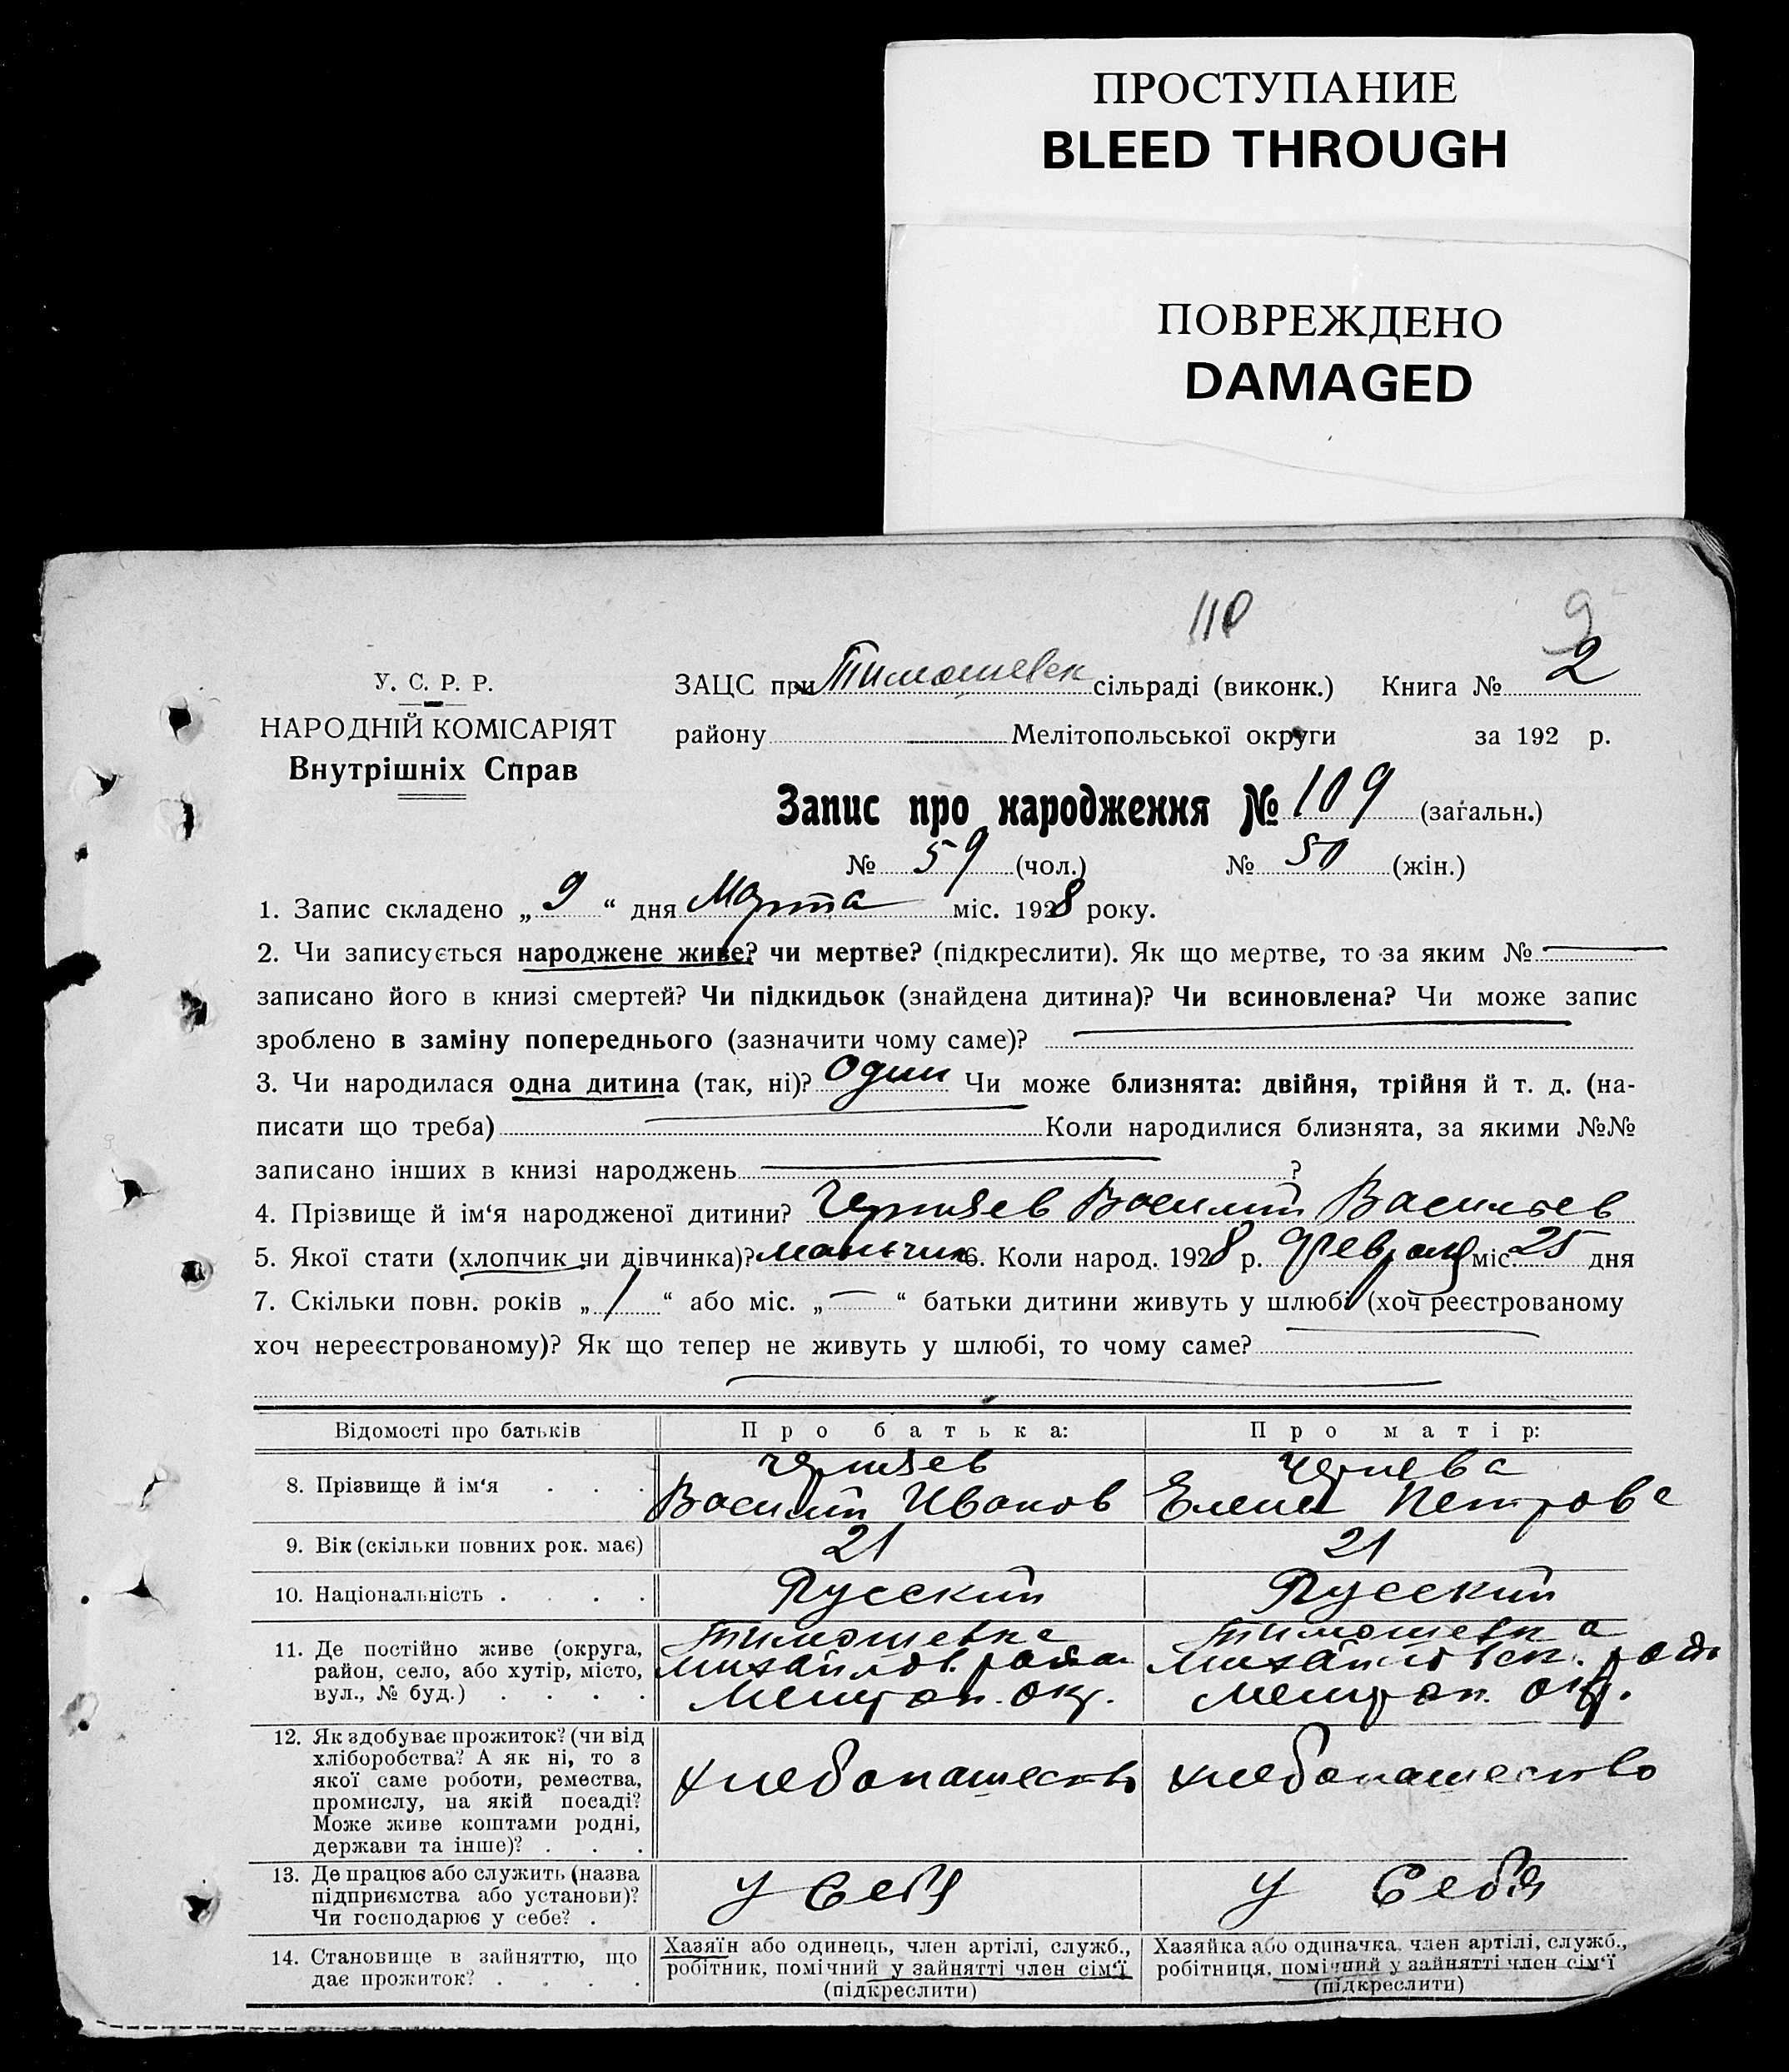 ПРОСТУПАНИЕ
BLEED THROUGH
ПОВРЕЖДЕНО
DAMAGED
110
9
У. С. Р. Р.
НАРОДНІЙ КОМІСАРІЯТ
Внутрішніх Справ
ЗАЦС при Тимошевск сільраді (виконк.) Книга № 2
району Мелітопольської округи за 192 р.
Запис про народження № 109 (загальн.)
№ 59 (чол.) № 50 (жін.)
1. Запис складено „ 9 “ дня Марта міс. 1928 року.
2. Чи записується народжене живе? чи мертве? (підкреслити). Як що мертве, то за яким №
записано його в книзі смертей? Чи підкидьок (знайдена дитина)? Чи всиновлена? Чи може запис
зроблено в заміну попереднього (зазначити чому саме)?
3. Чи народилася одна дитина (так, ні)? Один Чи може близнята: двійня, трійня й т. д. (на-
писати що треба) Коли народилися близнята, за якими №№
записано інших в книзі народжень ?
4. Прізвище й ім‘я народженої дитини? Василий Васильев
5. Якої стати (хлопчик чи дівчинка)? мальчик 6. Коли народ. 1928 р. Февраля міс. 25 дня
7. Скільки повн. років „ 1 “ або міс. „ — “ батьки дитини живуть у шлюбі (хоч реєстрованому
хоч нереєстрованому)? Як що тепер не живуть у шлюбі, то чому саме?
Відомості про батьків Про батька: Про матір:
8. Прізвище й ім‘я . . . Василий Иванов Елена Петрова
9. Вік (скільки повних рок. має) 21 21
10. Національність . . . . Русский Русский
11. Де постійно живе (округа, Тимошевка Тимошевка
район, село, або хутір, місто, Михайлов. район Михайловск. рай
вул., № буд.) . . . . Мелитоп. окр. Мелитоп. окр.
12. Як здобуває прожиток? (чи від
хліборобства? А як ні, то з
якої саме роботи, ремества, хлебопашество хлебопашество
промислу, на якій посаді?
Може живе коштами родні,
держави та інше)? . . .
13. Де працює або служить (назва
підприємства або установи)? у себя у себя
Чи господарює у себе? .
14. Становище в зайняттю, що Хазяїн або одинець, член артілі, служб., Хазяйка або одиначка, член артілі, служб.,
дає прожиток? . . . . робітник, помічний у зайнятті член сім‘ї робітниця, помічний у зайнятті член сім‘ї
(підкреслити) (підкреслити)